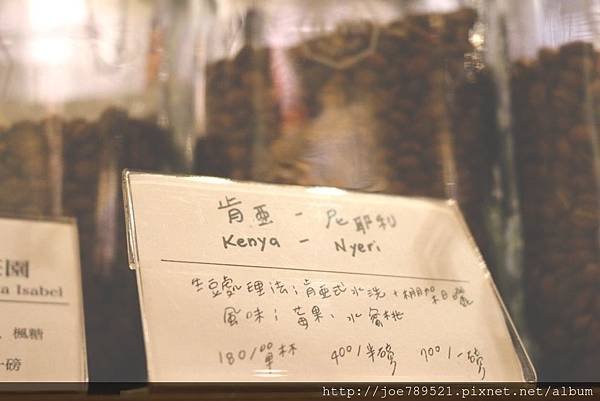 肯亞 - 尼耶利
Kenya - Nyeri
生豆處理法：肯亞式水洗＋棚架日曬
風味：莓果、水蜜桃
180/單杯 400/半磅 700/一磅
園
a Isabel
、楓糖
一磅
http://joe789521.pixnet.net/album